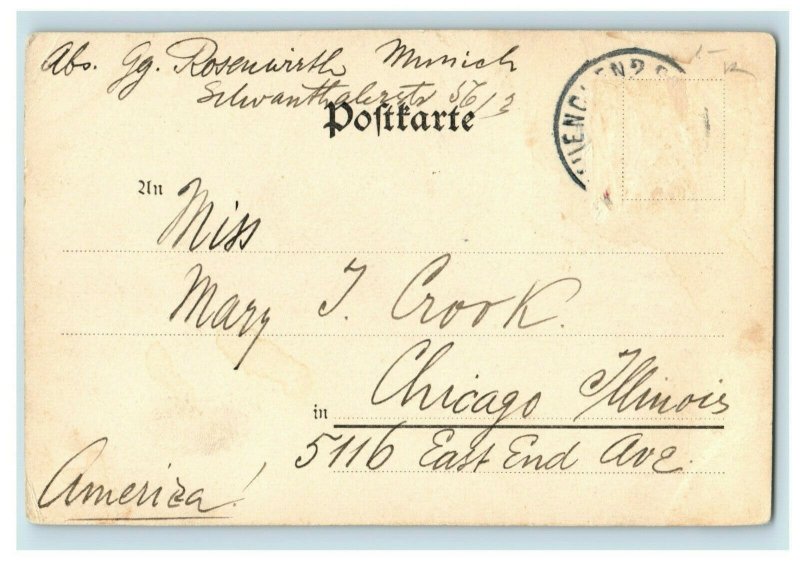 Abs. Gg. Rosenwirth Munich
Schwanthalerstr 56/2
Postkarte
MUENCHEN 2 B
An Miss
Mary T. Crook.
in Chicago Illinois
5116 East End Ave.
America!